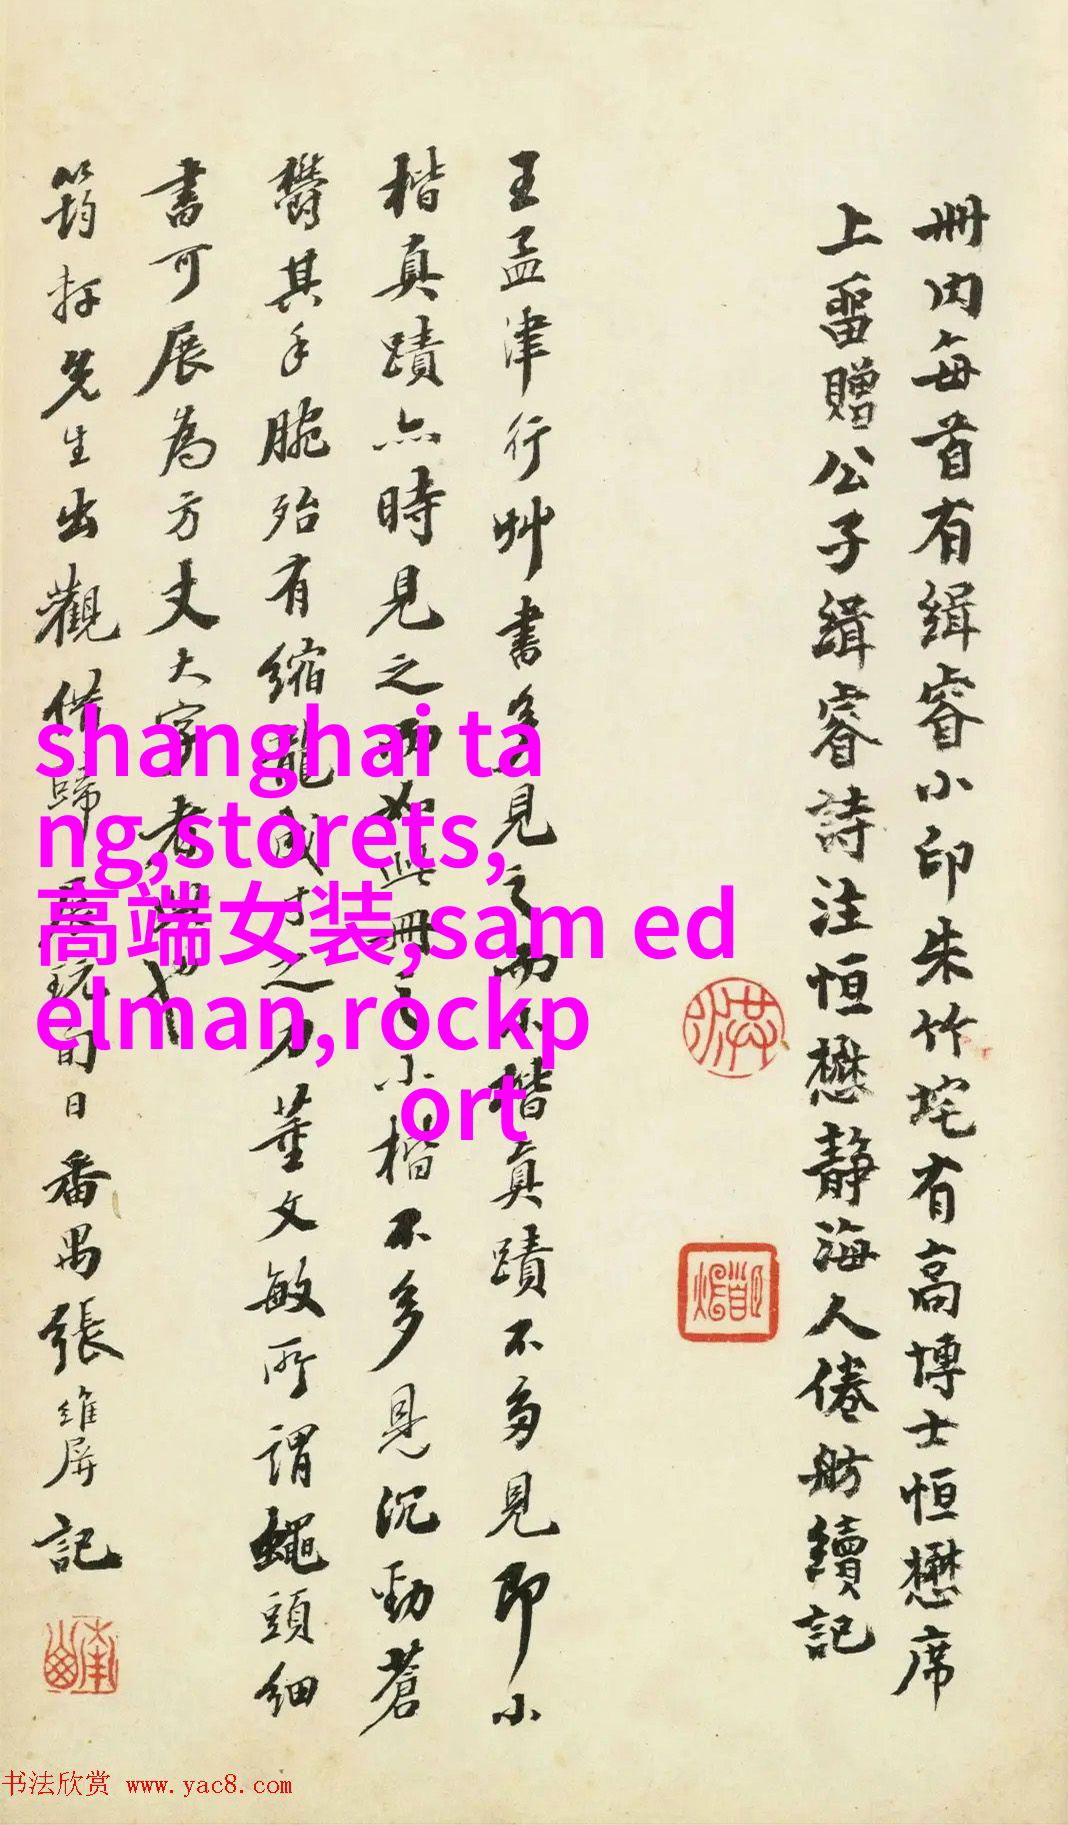 冊内每首有緝睿小印朱竹垞有高博士恒懋席
上畱贈公子緝睿詩注恒懋靜海人倦舫續記
王孟津行艸書多見之而小楷真蹟不多見即小
楷真蹟亦時見之而如此冊之小楷不多見沉勁蒼
鬱其手腕殆有縮龍成寸之力董文敏所謂蠅頭細
書可展為方丈大字者
筠
先生出觀借歸展玩旬日番禺張維屏記
shanghai ta
ng,storets,
高端女装,sam ed
elman,rockp
ort
书法欣赏 www.yac8.com